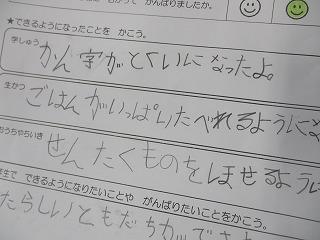 がんばりましたか。
★できるようになったことを かこう。
学しゅう
かん字がとくいになったよ。
生かつ
ごはんがいっぱいたべれるように
おうちや ちいき
せんたくものをほせるように
生で できるようになりたいことや がんばりたいことをかこう。
たらしいともだちが